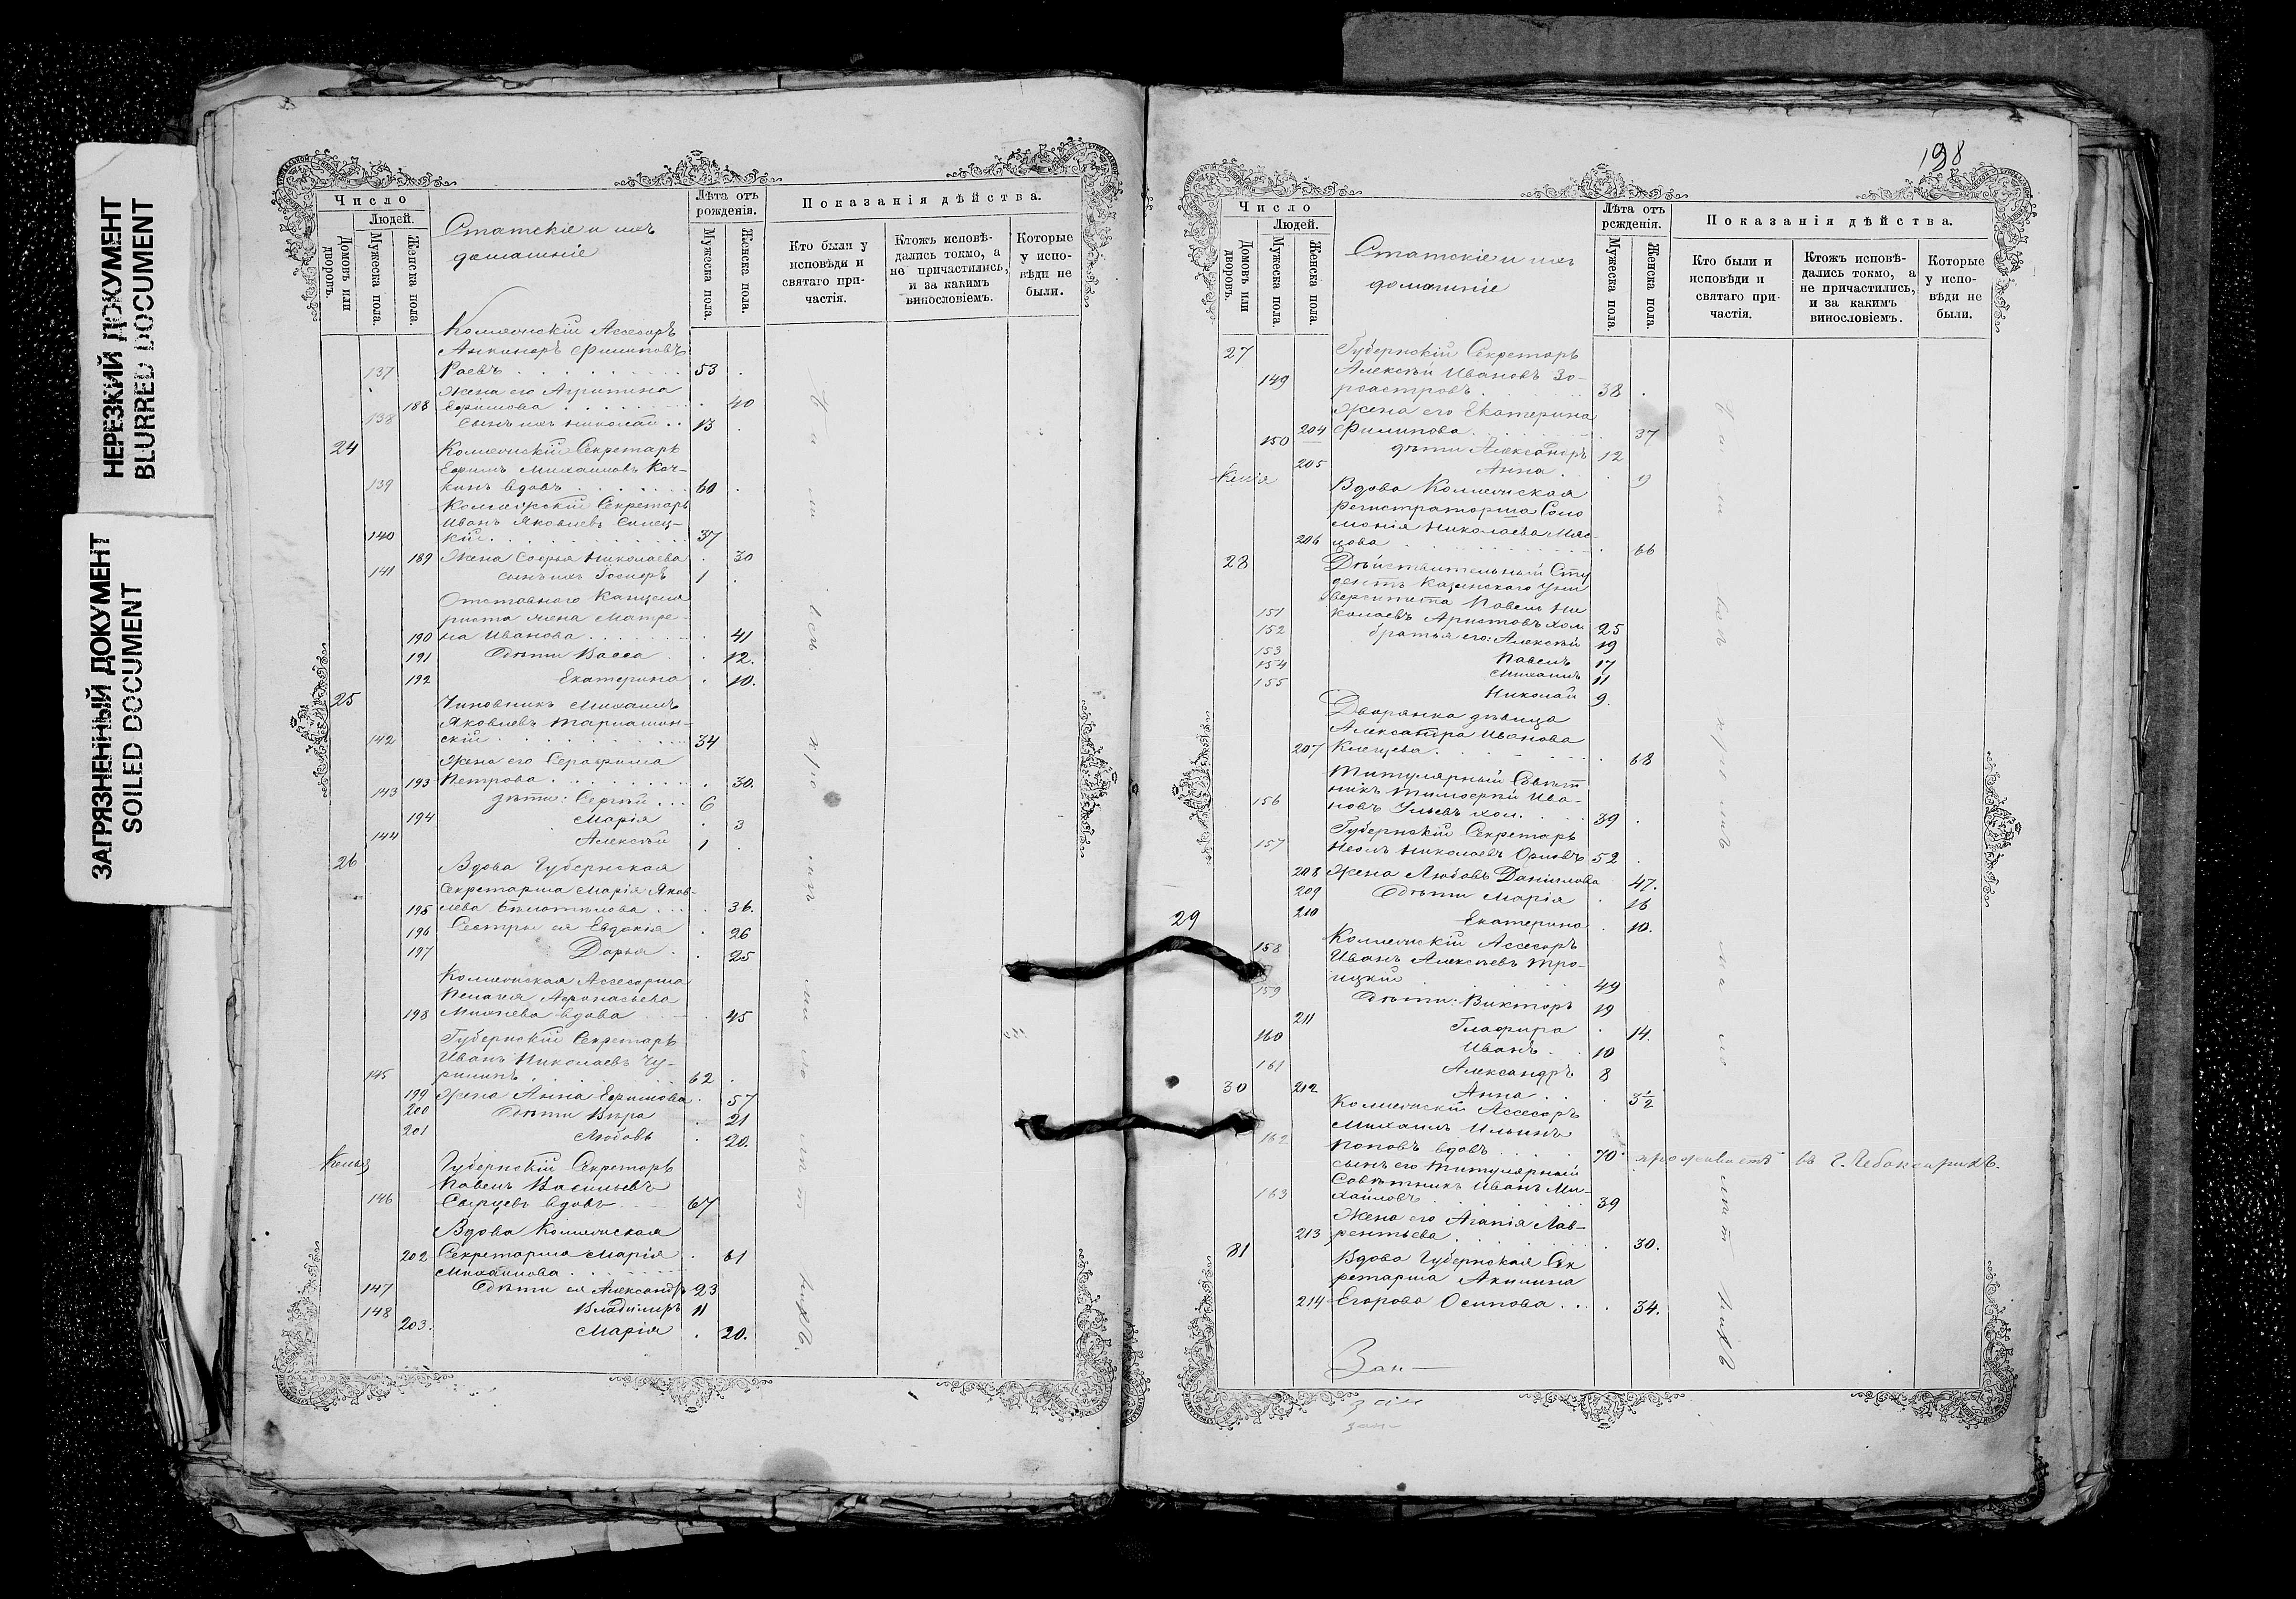 НЕРЕЗКИЙ ДОКУМЕНТ
BLURRED DOCUMENT
ЗАГРЯЗНЕННЫЙ ДОКУМЕНТ
SOILED DOCUMENT
Число
Домовъ или дворовъ.
Людей.
Мужеска пола.
Женска пола.
Статскіе и ихъ
домашніе
Лѣта отъ рожденія.
Мужеска пола.
Женска пола.
Показанія дѣйства.
Кто были у исповѣди и святаго при-частія.
Ктожъ исповѣ-дались токмо, а не причастились, и за какимъ винословіемъ.
Которые у испо-вѣди не были.
Коллежскій Ассесоръ
Филиповъ
137 Раевъ 53
Жена его Агрипина
188 Ефимова 40
138 Сынъ ихъ Николай 13
24 Коллежскій Секретарь
Ефимъ Михаиловъ Коч-
139 кинъ вдовъ 60
Коллежскій Секретарь
Иванъ Яковлевъ Синец-
140 кій 37
189 Жена Софья Николаева 30
141 сынъ ихъ 1
Отставнаго Канцеля
риста жена Матре-
190 на Иванова 41
191 Дѣти Васса 12.
192 Екатерина 10.
25 Чиновникъ Михаилъ
Яковлевъ
142 скій 34
Жена его Серафима
193 Петрова 30.
143 дѣти: Сергѣй 6
194 Марія 3
144 Алексѣй 1
26 Вдова Губернская
Секретарша Марія Яков-
195 лева Бѣлотѣлова 36.
196 Сестры ея Евдокія 26
197 Дарья 25
Коллежская Ассесорша
Пелагія Афонасьева
198 Михѣева вдова 45
Губернскій Секретарь
Иванъ Николаевъ Чу-
145 рилинъ 62
199 Жена Анна Ефимова 57
200 Дѣти Вѣра 21
201 Любовь 20.
Келья Губернскій Секретарь
Павелъ Васильевъ
146 Сырцевъ вдовъ 67
Вдова Коллежская
202 Секретарша Марія 61
Михаилова
147 Дѣти ея Александръ 23
148 Владимиръ 11
203. Марія 20.
198
Число
Домовъ или дворовъ.
Людей.
Мужеска пола.
Женска пола.
Статскіе и ихъ
домашніе
Лѣта отъ рожденія.
Мужеска пола.
Женска пола.
Показанія дѣйства.
Кто были и исповѣди и святаго при-частія.
Ктожъ исповѣ-дались токмо, а не причастились, и за какимъ винословіемъ.
Которые у испо-вѣди не были.
27 Губернскій Секретарь
Алексѣй Ивановъ Зо-
149 роастровъ 38
Жена его Екатерина
204 Филипова 37
150 дѣти Александръ 12
205 Анна 9
Келія Вдова Коллежская
Регистраторша Соло
монія Николаева Мяс-
206 цова 66
28 Дѣйствительный Сту
дентъ Казанскаго Уни
верситета Павелъ Ни
151 колаевъ Аристовъ хол 25
152 братья его: Алексѣй 19
153 Павелъ 17
154 Михаилъ 11
155 Николай 9.
Дворянка дѣвица
Александра Иванова
207 Клещева 68
Титулярный Совѣт
никъ Тимофей Ива-
156 новъ Ульевъ хол. 39
Губернскій Секретарь
157 Николаевъ Орловъ 52
208 Жена Любовь Даніилова 47.
209 Дѣти Марія 16
210 Екатерина 10.
29 Коллежскій Ассесоръ
158 Иванъ Алексѣевъ Тро-
ицкій 49
159 Дѣти: Викторъ 19
211 Глафира 14.
160 Иванъ 10
161 Александръ 8
212 Анна 3½
30 Коллежскій Ассесоръ
Михаилъ Ильинъ
162 Поповъ вдовъ 70 проживаетъ въ г. Чебоксарахъ.
сынъ его Титулярный
Совѣтникъ Иванъ Ми-
163 хайловъ 39
Жена его Агапія Лав-
213 рентьева 30.
31 Вдова Губернская Сек
ретарша Акилина
214 Егорова Осипова 34.